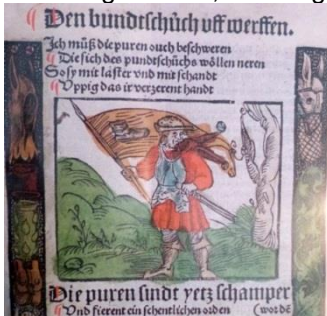 Den bundtschůch uff werffen.
Jch můß die puren ouch beschweren
Die sich des pundtschůchs wöllen neren
So sy mit laster vnd mit schandt
Vppig das ir verzerent handt
Die puren sindt yetz schamper
Vnd fierent ein schentlichen orden (wordē